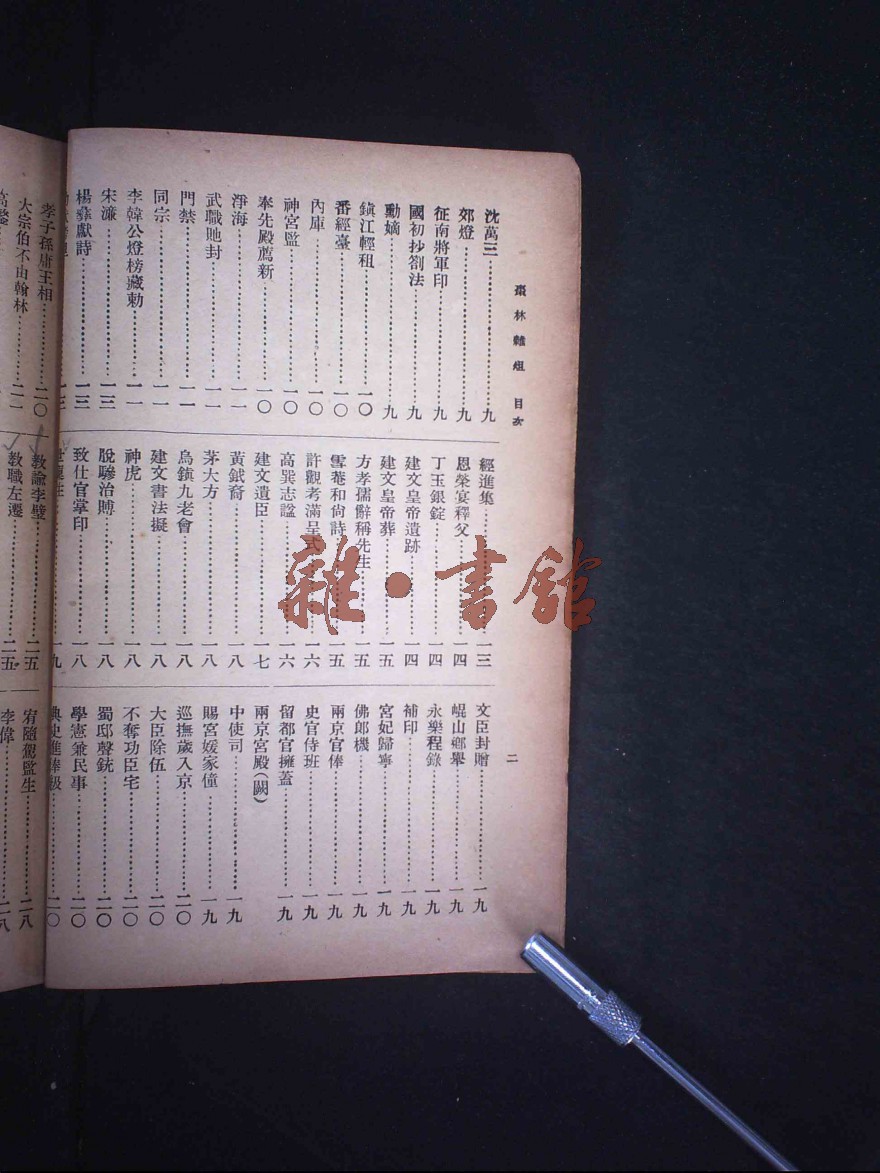 棗林雜俎 目次
二
沈萬三……九
郊燈……九
征南將軍印……九
國初抄劄法……九
勳嫡……九
鎮江輕租……一〇
番經臺……一〇
內庫……一〇
神宮監……一〇
奉先殿薦新……一〇
淨海……一一
武職貤封……一一
門禁……一一
同宗……一一
李韓公燈榜藏勅……一一
宋濂……一三
楊彝獻詩……一三
一三
經進集……一三
恩榮宴釋父……一四
丁玉銀錠……一四
建文皇帝遺跡……一四
建文皇帝葬……一五
方孝孺辭稱先生……一五
雪菴和尙詩……一五
許觀考滿呈式……一六
高巽志諡……一六
建文遺臣……一七
黃鉞裔……一八
茅大方……一八
烏鎮九老會……一八
建文書法擬……一八
神虎……一八
脫驂治賻……一八
致仕官掌印……一八
九
文臣封贈……一九
崐山鄉舉……一九
永樂程錄……一九
補印……一九
宮妃歸寧……一九
佛郎機……一九
兩京官俸……一九
史官侍班……一九
留都官擁蓋……一九
兩京宮殿(闕)
中使司……一九
賜宮媛家僮……一九
巡撫歲入京……二〇
大臣除伍……二〇
不奪功臣宅……二〇
蜀邸聲銃……二〇
學憲兼民事……二〇
典史進俸級……二〇
孝子孫庸王相……二〇
大宗伯不由翰林……二一
教諭李璧……二五
教職左遷……二五
宥隨駕監生……二八
李偉……二八
雜·書館